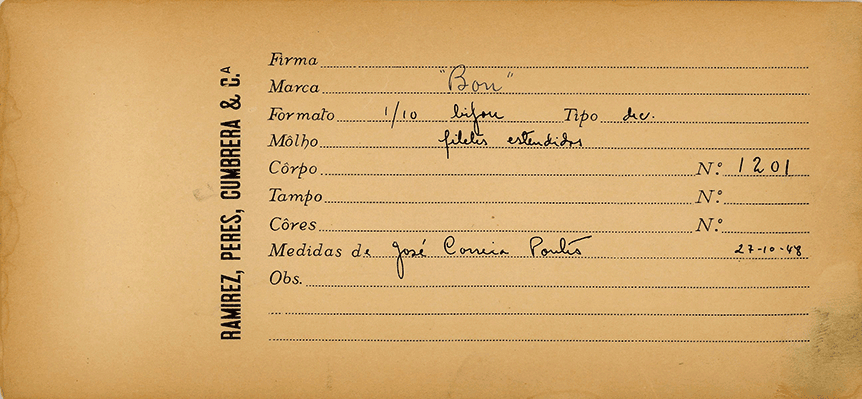 RAMIREZ, PERES, CUMBRERA & C.ᴬ
Firma
Marca "Bon"
Formato 1/10 bijou Tipo dec.
Môlho filetes estendidos
Côrpo N.º 1201
Tampo N.º
Côres N.º
Medidas de José Correia Pontes 27-10-48
Obs.